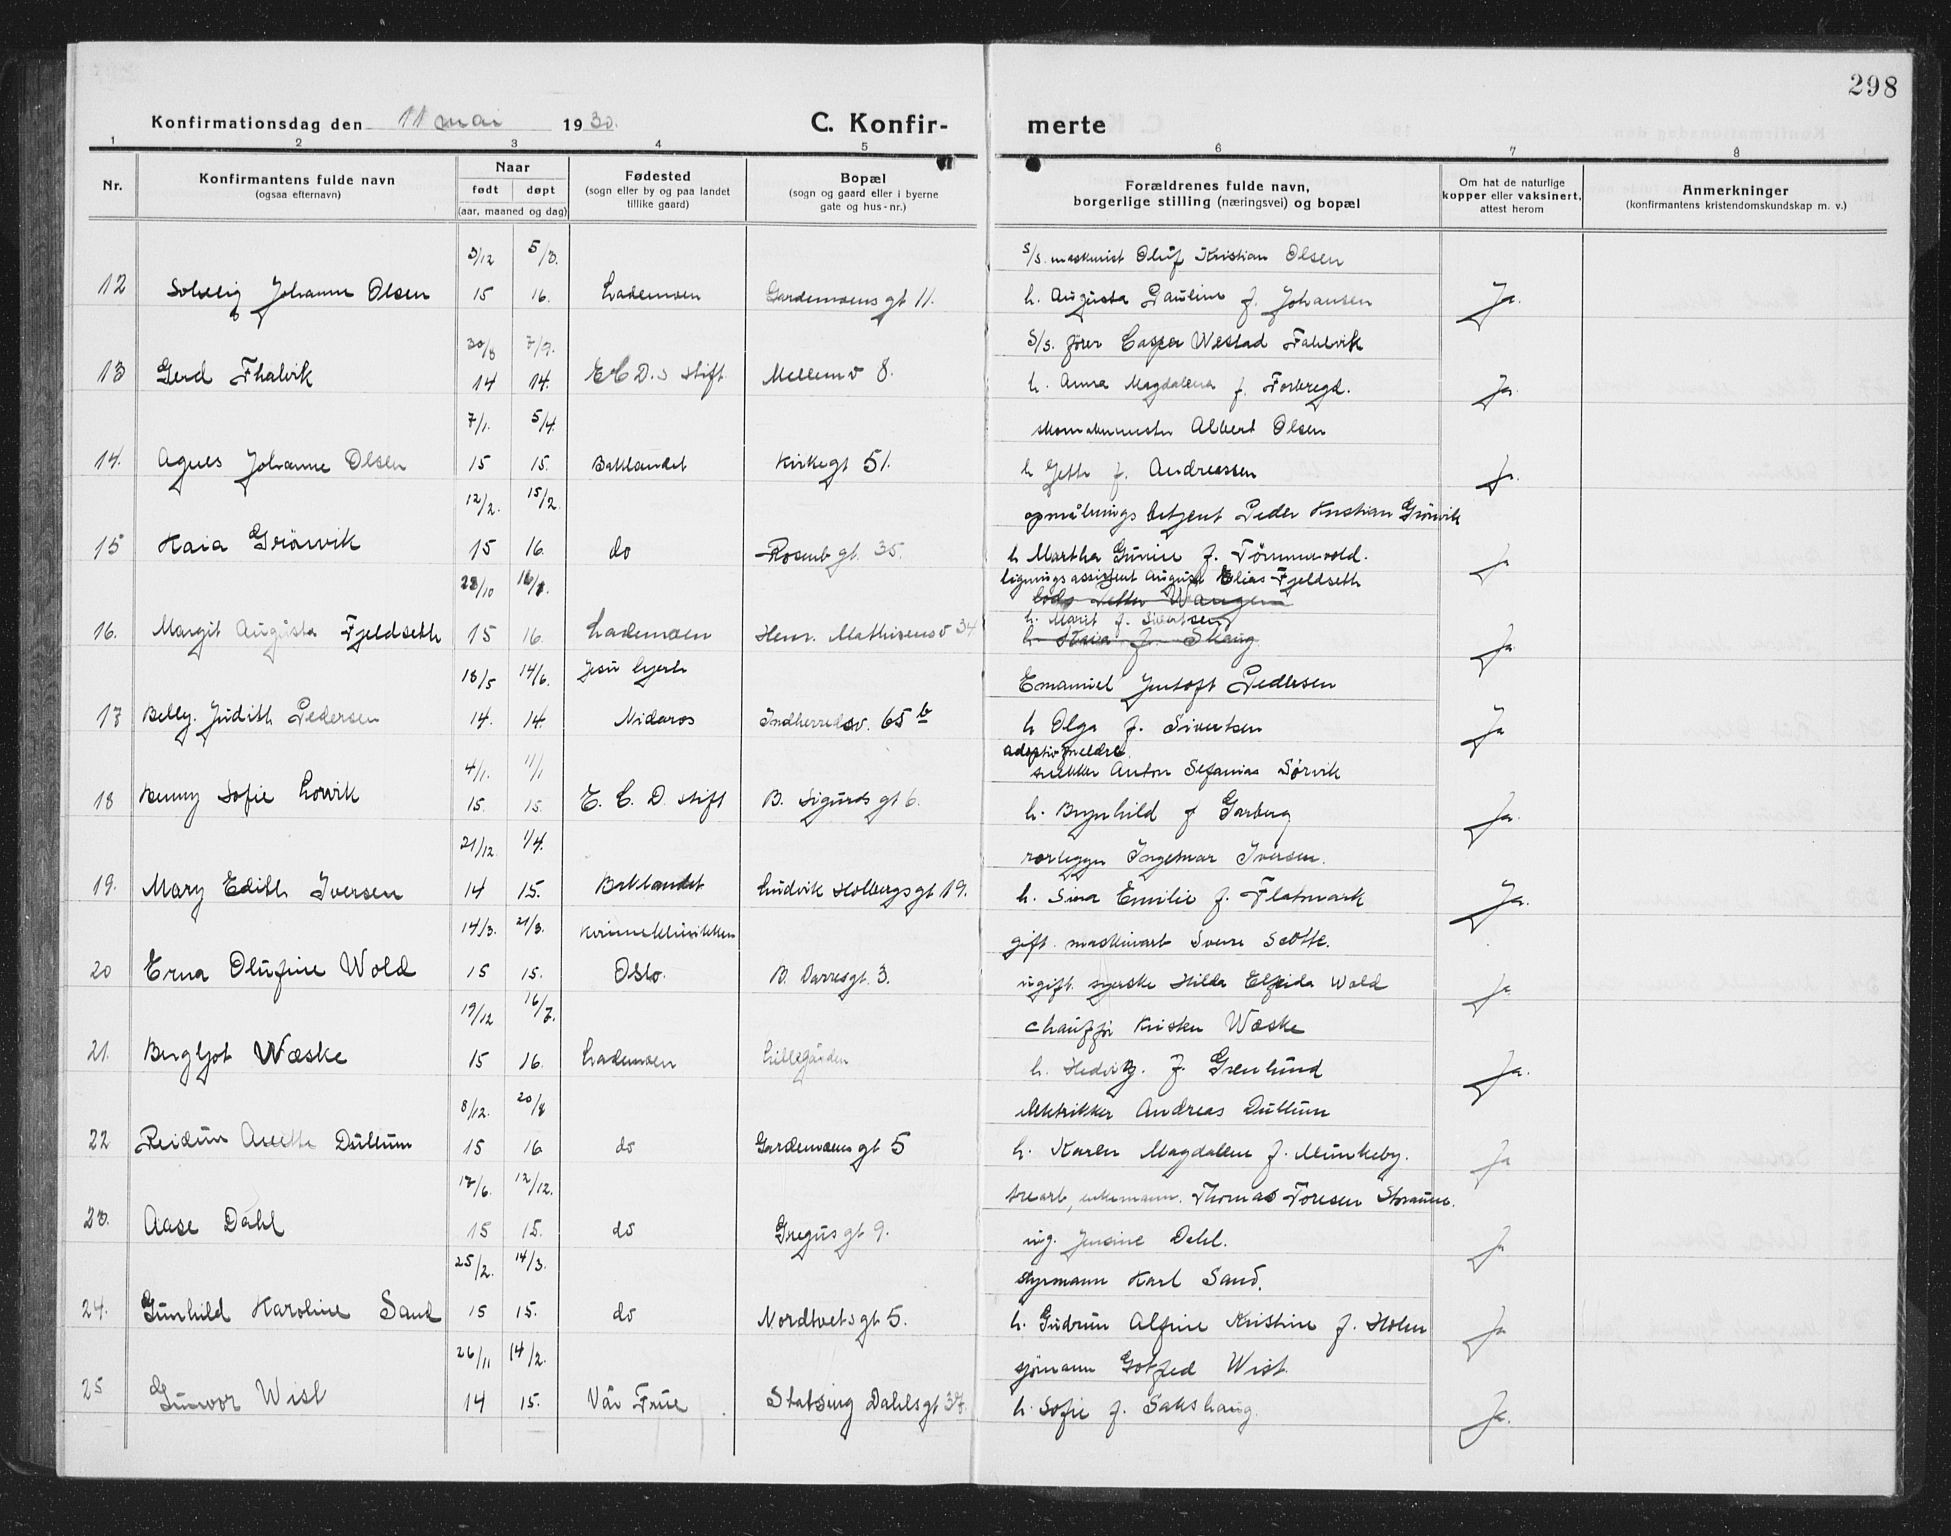 298
Konfirmationsdag den 11 mai 1930.
C. Konfir- merte
1 2 3 4 5 6 7 8
Nr.
Konfirmantens fulde navn
(ogsaa efternavn)
Naar
født døpt
(aar, maaned og dag)
Fødested
(sogn eller by og paa landet
tillike gaard)
Bopæl
(sogn og gaard eller i byerne
gate og hus-nr.)
Forældrenes fulde navn,
borgerlige stilling (næringsvei) og bopæl
Om hat de naturlige
kopper eller vaksinert,
attest herom
Anmerkninger
(konfirmantens kristendomskundskap m. v.)
3/12 5/3. s/s. maskinist Oluf Kristian Olsen
12 Solveig Johanne Olsen 15 16. Lademoen Gardemoens gt 11. h. Augusta Pauline f. Johansen Ja.
30/8 7/9. S/s. fører Casper Westad Fahlvik
13 Gerd Fhalvik 14 14. E C D.s stift. Mellemv 8. h. Anna Magdalena f. Forbregd. Ja.
7/1. 5/4. skomakermester Albert Olsen
14. Agnes Johanne Olsen 15 15. Baklandet Kirkegt 51. h Jette f. Andreassen Ja.
12/2. 15/2. opmålnings betjent Peder Kristian Grönvik
15 Kaia Grönvik 15 16. do Rosenb gt. 35. h Martha Gurine f. Tömmervold. Ja
28/10 16/1. ligningsassistent August Elias Fjeldseth
16. Margit Augusta Fjeldseth 15 16. Lademoen Henr. Mathisens v 34 h. Marit f. Sivertsen Ja
18/5 14/6. Jesu hjerte Emanuel Jentoft Pedersen
17 Belly. Judith Pedersen 14. 14. Nidaros Indherredsv. 65 b h Olga f. Sivertsen Ja
adoptivforeldre
4/1. 11/1 snekker Anton Sefanias Sørvik
18 Benny Sofie Lorvik 15. 15. E. C. D. stift B. Sigurds gt 6. h. Brynhild f Garberg Ja.
21/12. 1/4. rørlegger Ingemar Iversen.
19. Mary Edith Iversen 14 15. Baklandet Ludvik Holbergs gt 19. h. Sina Emilie f. Flatmark Ja.
14/3. 21/3. Kvinneklinikken gift maskinarb Sverre Scötte.
20 Erna Olufine Wold 15 15. Oslo. B. Darresgt. 3. ugift. syerske Hilda Elfrida Wold Ja
19/12 16/7. chauffør Kristen Wæske
21. Bergljot Wæske 15 16. Lademoen Lillegården h. Hedvig. f. Grenlund Ja.
8/12. 20/8 elektrikker Andreas Dullum
22 Reidun Anette Dullum 15 16 do Gardemoens gt 5 h. Karen Magdalene f. Munkeby. Ja
17/6. 12/12. trearb, enkemann. Thomas Toresen
23. Aase Dahl 15 15. do Gregus gt 9. ug. Jensine Dahl. Ja
25/2. 14/3. styrmann Karl Sand.
24. Gunhild Karoline Sand 15 15. do Nordtvets gt 5. h. Gudrun Alfine Kristine f. Holm Ja
26/11 14/2. sjømann Gotfred Wist
25 Gunvor Wist 14 15. Vår Frue Statsing Dahls gt 37. h. Sofie f. Sakshaug. Ja.